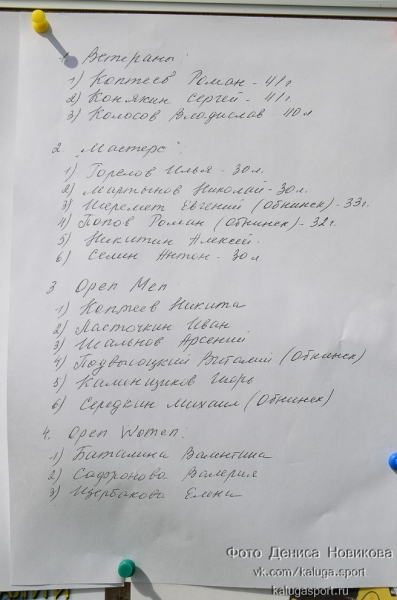 1. Ветераны:
1) Коптеев Роман - 41г
2) Конякин Сергей - 41г
3) Колосов Владислав 40л
2 "Мастерс":
1) Горелов Илья - 30л.
2) Мартынов Николай - 30л.
3) Шеремет Евгений (Обнинск) - 33г.
4) Попов Роман (Обнинск) - 32г.
5) Никитин Алексей.
6) Селин Антон - 30л
3 Open Men
1) Коптеев Никита
2) Ласточкин Иван
3) Шальнов Арсений
4) Подвысоцкий Виталий (Обнинск)
5) Калинщиков Игорь
6) Середкин Михаил (Обнинск)
4. Open Women:
1) Баталина Валентина
2) Сафронова Валерия
3) Щербакова Елена
Фото Дениса Новикова
vk.com/kaluga.sport
kalugasport.ru